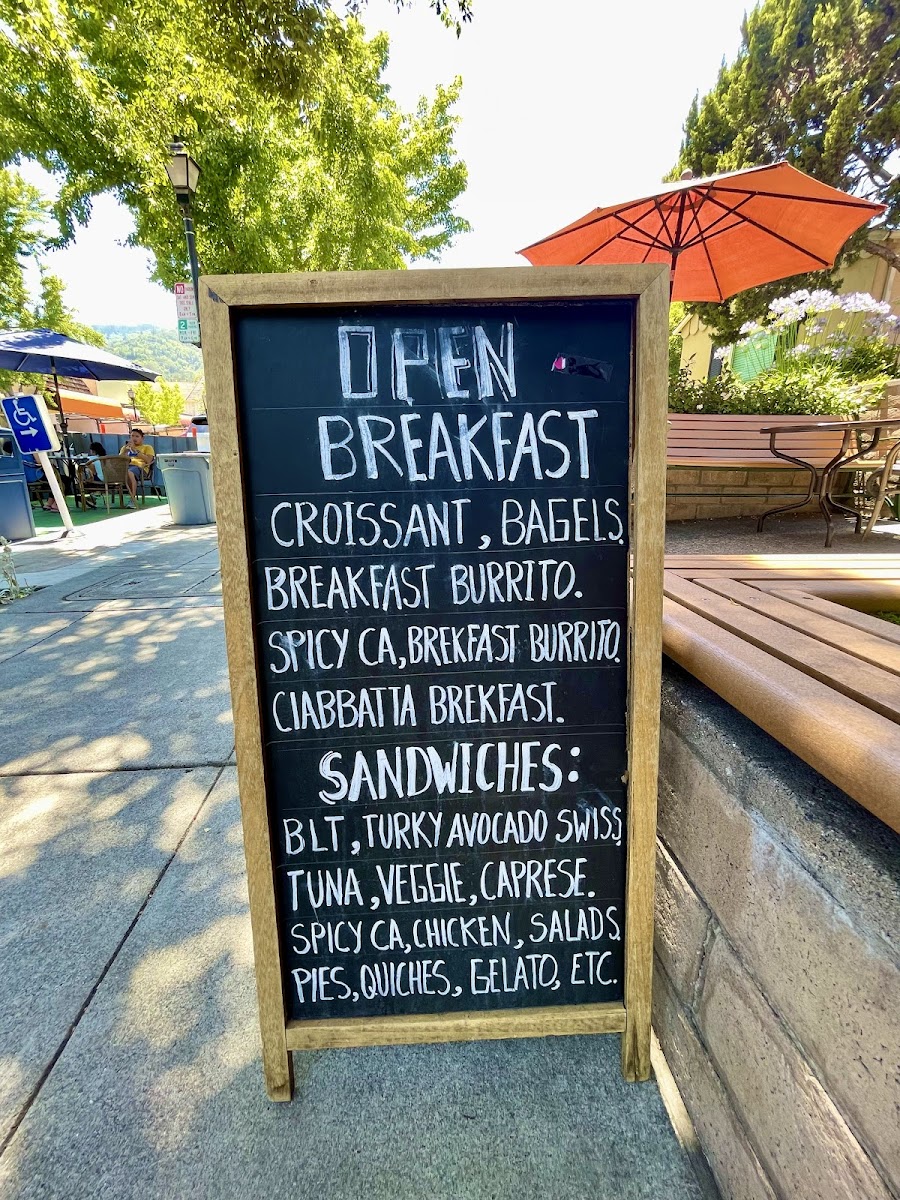 OPEN
BREAKFAST
CROISSANT, BAGELS,
BREAKFAST BURRITO.
SPICY CA, BREKFAST BURRITO,
CIABBATTA BREKFAST.
SANDWICHES:
BLT, TURKY AVOCADO SWISS,
TUNA, VEGGIE, CAPRESE.
SPICY CA, CHICKEN, SALADS,
PIES, QUICHES, GELATO, ETC.